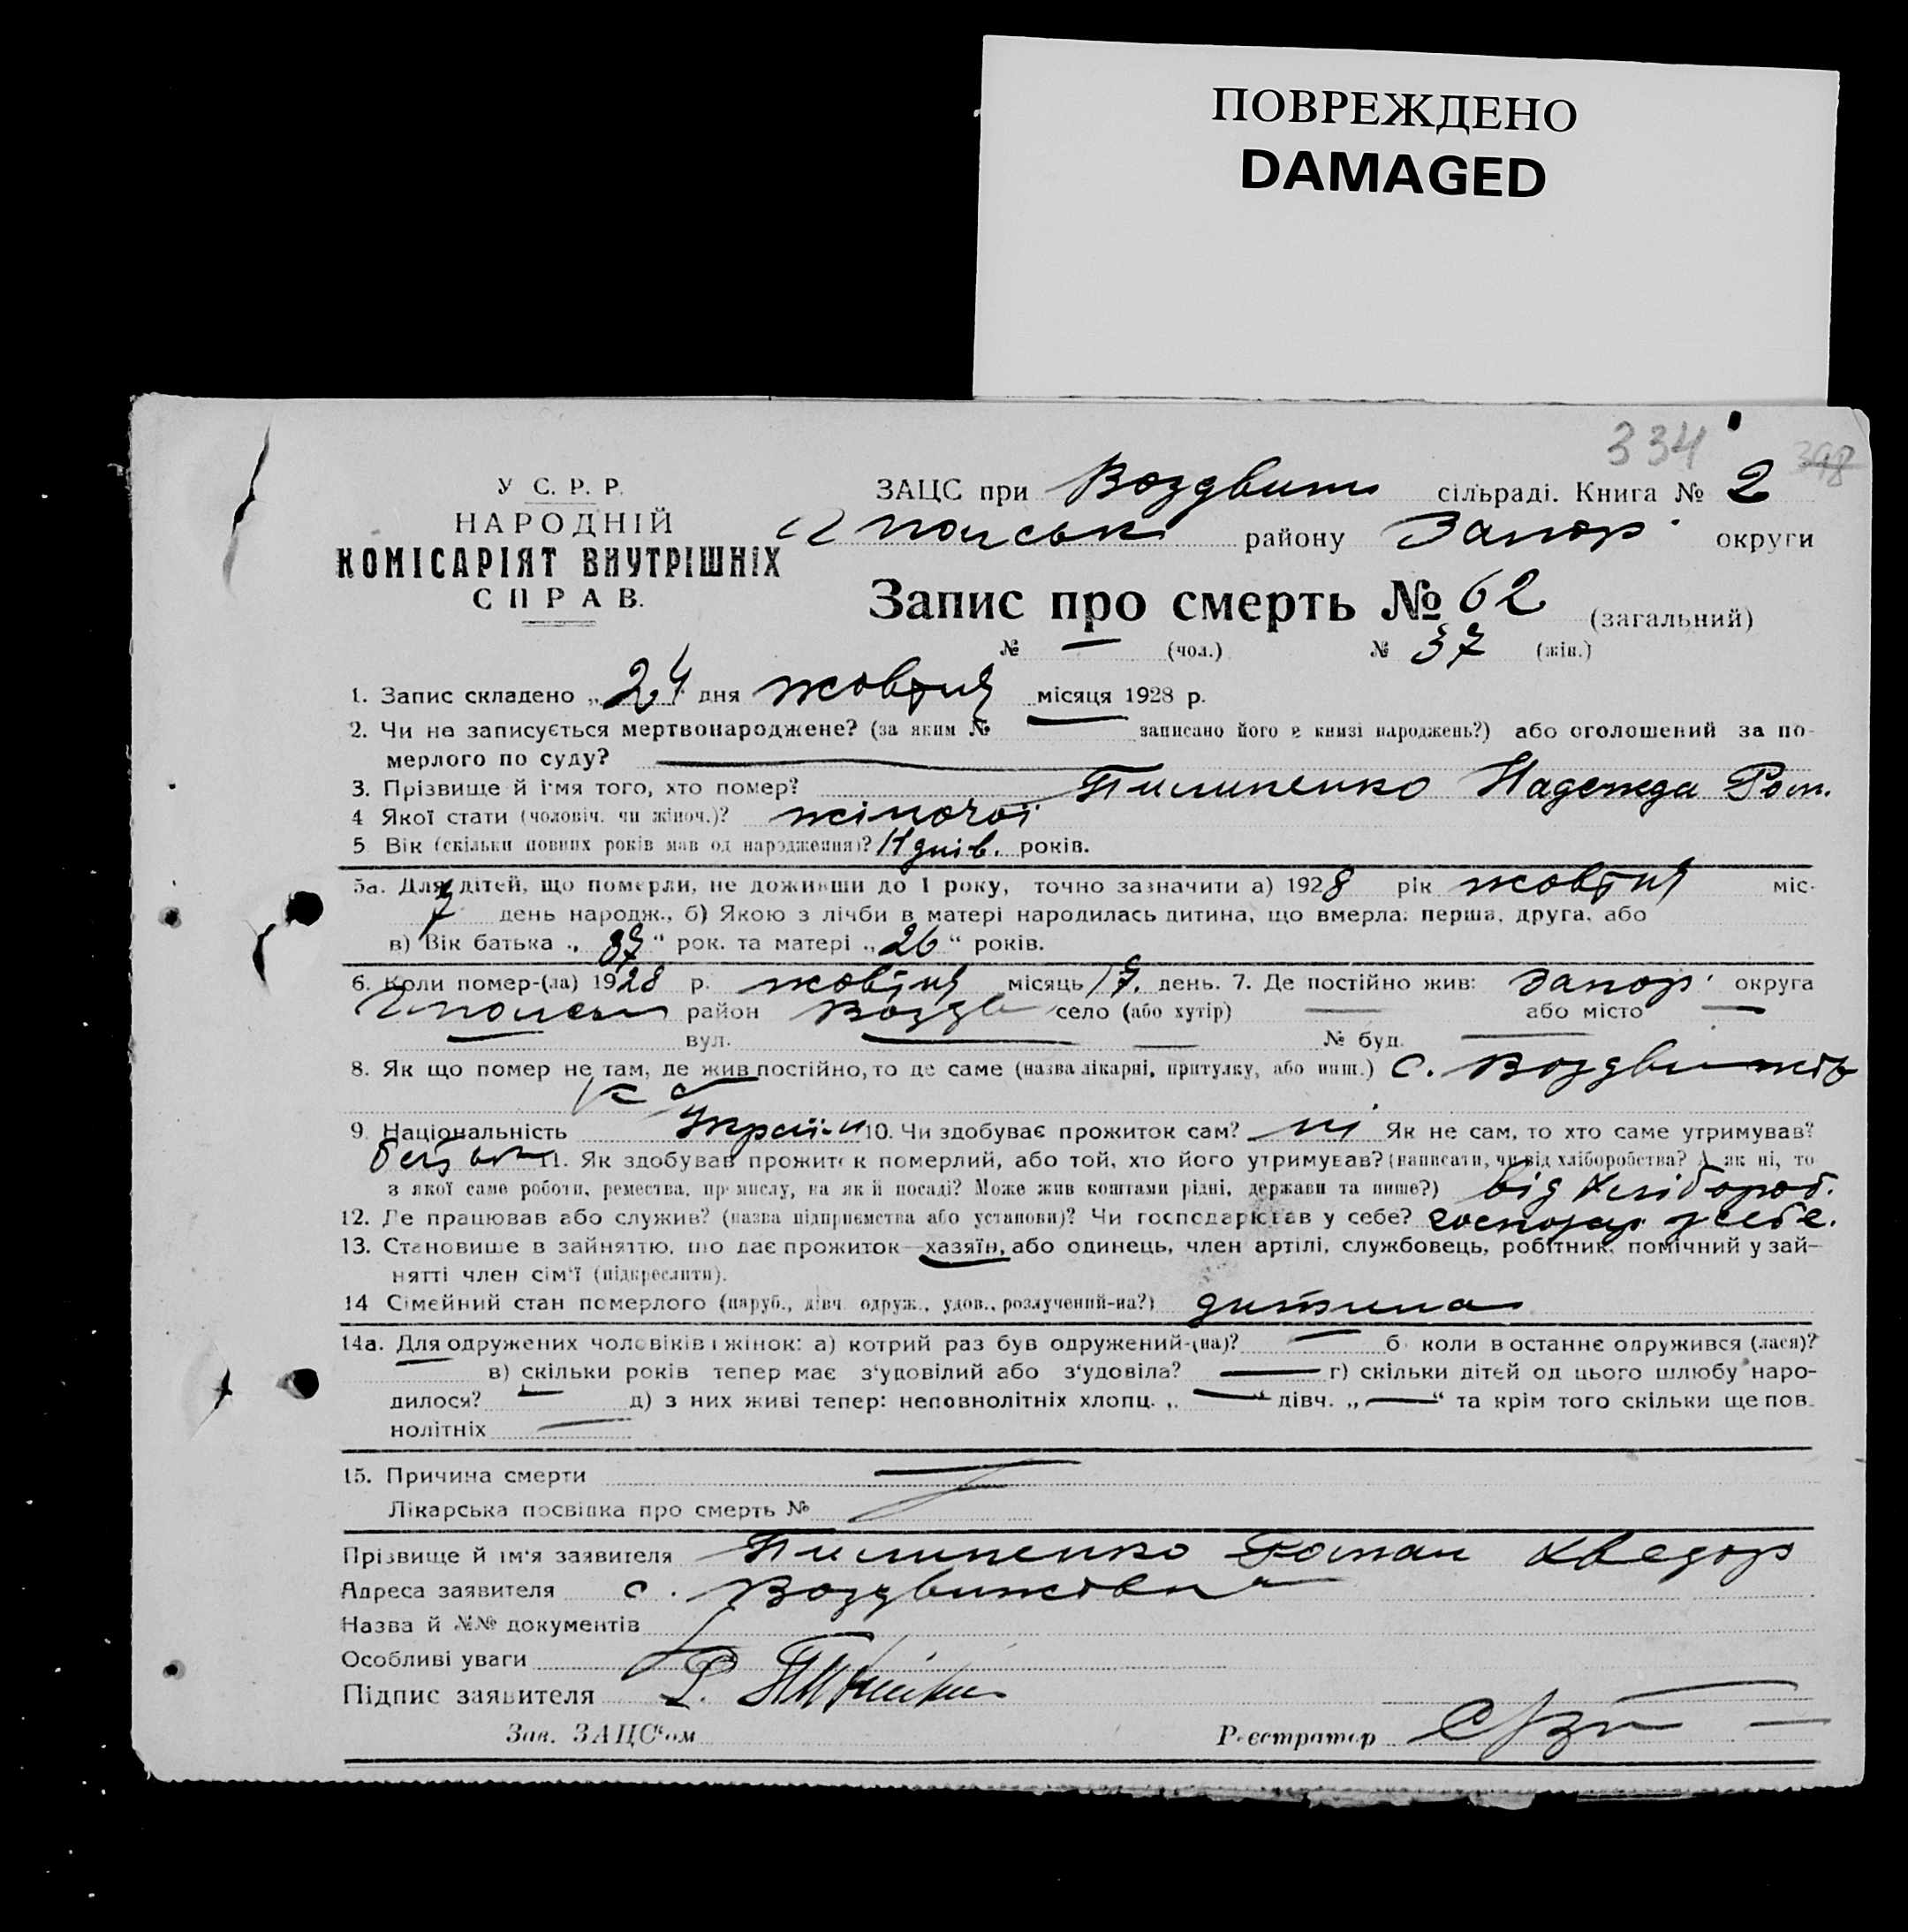 ПОВРЕЖДЕНО
DAMAGED
334
398
У С. Р. Р.
НАРОДНІЙ
КОМІСАРІЯТ ВНУТРІШНІХ
СПРАВ.
ЗАЦС при Воздвиж сільраді. Книга № 2
району Запор. округи
Запис про смерть № 62 (загальний)
№ — (чол.) № 37 (жін.)
1. Запис складено „24" дня жовтня місяця 1928 р.
2. Чи не записується мертвонароджене? (за яким № — записано його в книзі народжень?) або оголошений за по-
мерлого по суду? —
3. Прізвище й ім'я того, хто помер? Пилипенко Надежда Ром.
4 Якої стати (чоловіч. чи жіноч.)? жіночої
5 Вік (скільки повних років мав од народження)? днів. років.
5а. Для дітей, що померли, не доживши до 1 року, точно зазначити а) 1928 рік жовтня міс.
7 день народж., б) Якою з лічби в матері народилась дитина, що вмерла: перша, друга, або
в) Вік батька „37" рок. та матері „26" років.
6. Коли помер-(ла) 1928 р. жовтня місяць 17. день. 7. Де постійно жив: Запор. округа
район Воздв село (або хутір) — або місто —
— вул. — № буд. —
8. Як що помер не там, де жив постійно, то де саме (назва лікарні, притулку, або инш.) с. Воздвижів
ка
9. Національність Україн 10. Чи здобуває прожиток сам? ні Як не сам, то хто саме утримував?
батьки 11. Як здобував прожиток померлий, або той, хто його утримував? (написати, чи від хліборобства? А як ні, то
з якої саме роботи, ремества, промислу, на якій посаді? Може жив коштами рідні, держави та инше?) від хлібороб.
12. Де працював або служив? (назва підприємства або установи)? Чи господарював у себе? господар. у себе.
13. Становище в зайняттю, що дає прожиток—хазяїн, або одинець, член артілі, службовець, робітник, помічний у зай-
нятті член сім'ї (підкреслити).
14 Сімейний стан померлого (паруб., дівч. одруж., удов., розлучений-на?) дитина
14а. Для одружених чоловіків і жінок: а) котрий раз був одружений-(на)? — б коли востаннє одружився (лася)?
— в) скільки років тепер має з'удовілий або з'удовіла? — г) скільки дітей од цього шлюбу наро-
дилося? — д) з них живі тепер: неповнолітніх хлопц. „—" дівч. „—" та крім того скільки ще пов-
нолітніх —
15. Причина смерти —
Лікарська посвідка про смерть №
Прізвище й ім'я заявителя Пилипенко Роман Хведор
Адреса заявителя с. Воздвижівка
Назва й №№ документів
Особливі уваги
Підпис заявителя Р.
Зав. ЗАЦС'ом Реєстратор